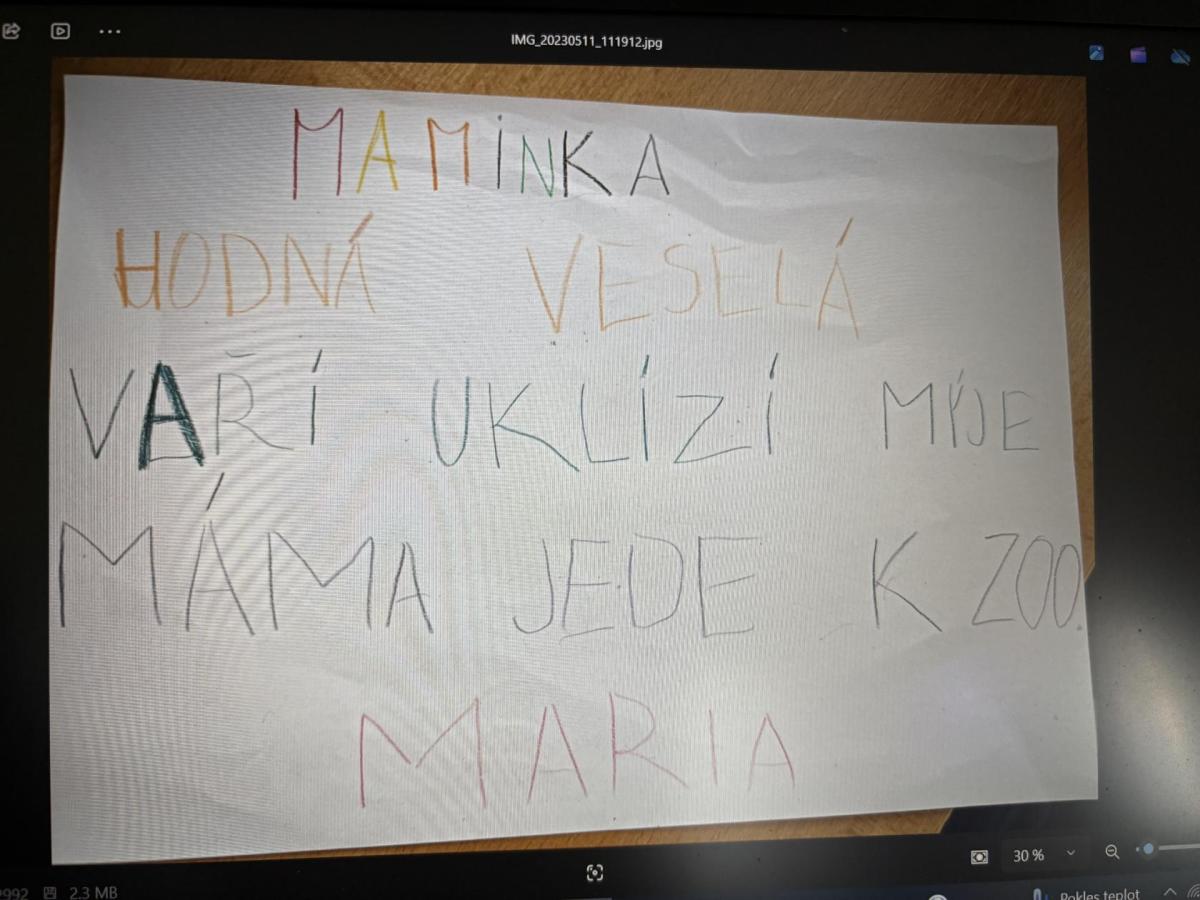 IMG_20230511_111912.jpg
MAMINKA
HODNÁ VESELÁ
VAŘÍ UKLÍZÍ MÍJE
MÁMA JEDE K ZOO.
MARIA
30 %
2.3 MB
Pokles teplot